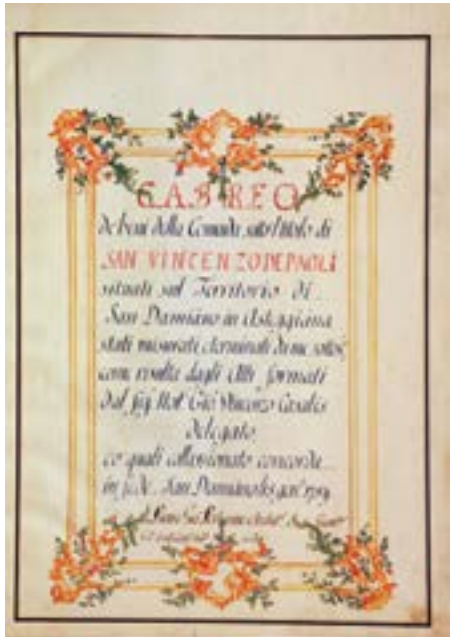 CABREO
de beni della Comenda sotto il titolo di
SAN VINCENZO DE PAOLI
situati sul Territorio di
San Damiano in Asteggiana
stati misurati e terminati da me sottos
come risulta dagli Atti formati
dal sig. Not. Gio Vincenzo Casalis
delegato
co quali collazionato concorda
in fede San Damiano